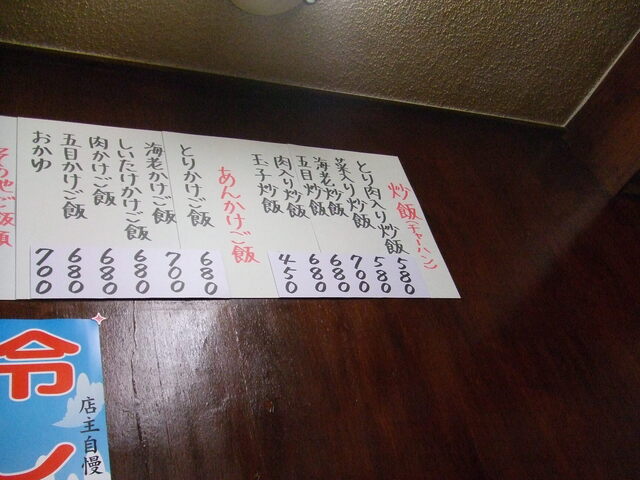 炒飯(チャーハン)
とり肉入り炒飯 580
菜入り炒飯 580
海老炒飯 700
五目炒飯 680
肉入り炒飯 680
玉子炒飯 450
あんかけご飯
とりかけご飯 680
海老かけご飯 700
しいたけかけご飯 680
肉かけご飯 680
五目かけご飯 680
おかゆ 700
その他ご飯類
店主自慢